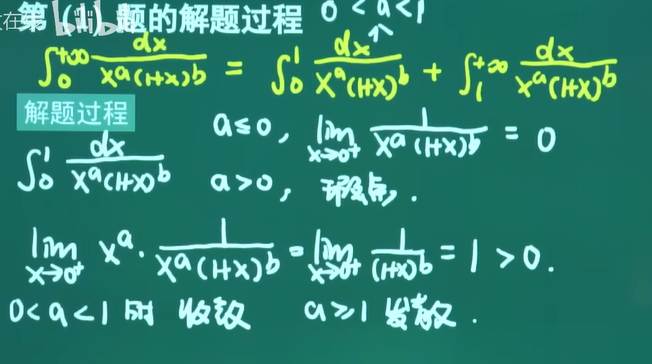 第(11)题的解题过程 0 < a < 1
∫₀^{+∞} dx / x^a(1+x)^b = ∫₀^1 dx / x^a(1+x)^b + ∫₁^{+∞} dx / x^a(1+x)^b
解题过程
a≤0, lim_{x→0⁺} 1 / x^a(1+x)^b = 0
∫₀^1 dx / x^a(1+x)^b a>0, 瑕点.
lim_{x→0⁺} x^a · 1 / x^a(1+x)^b = lim_{x→0⁺} 1 / (1+x)^b = 1 > 0.
0<a<1时 收敛 a≥1 发散.